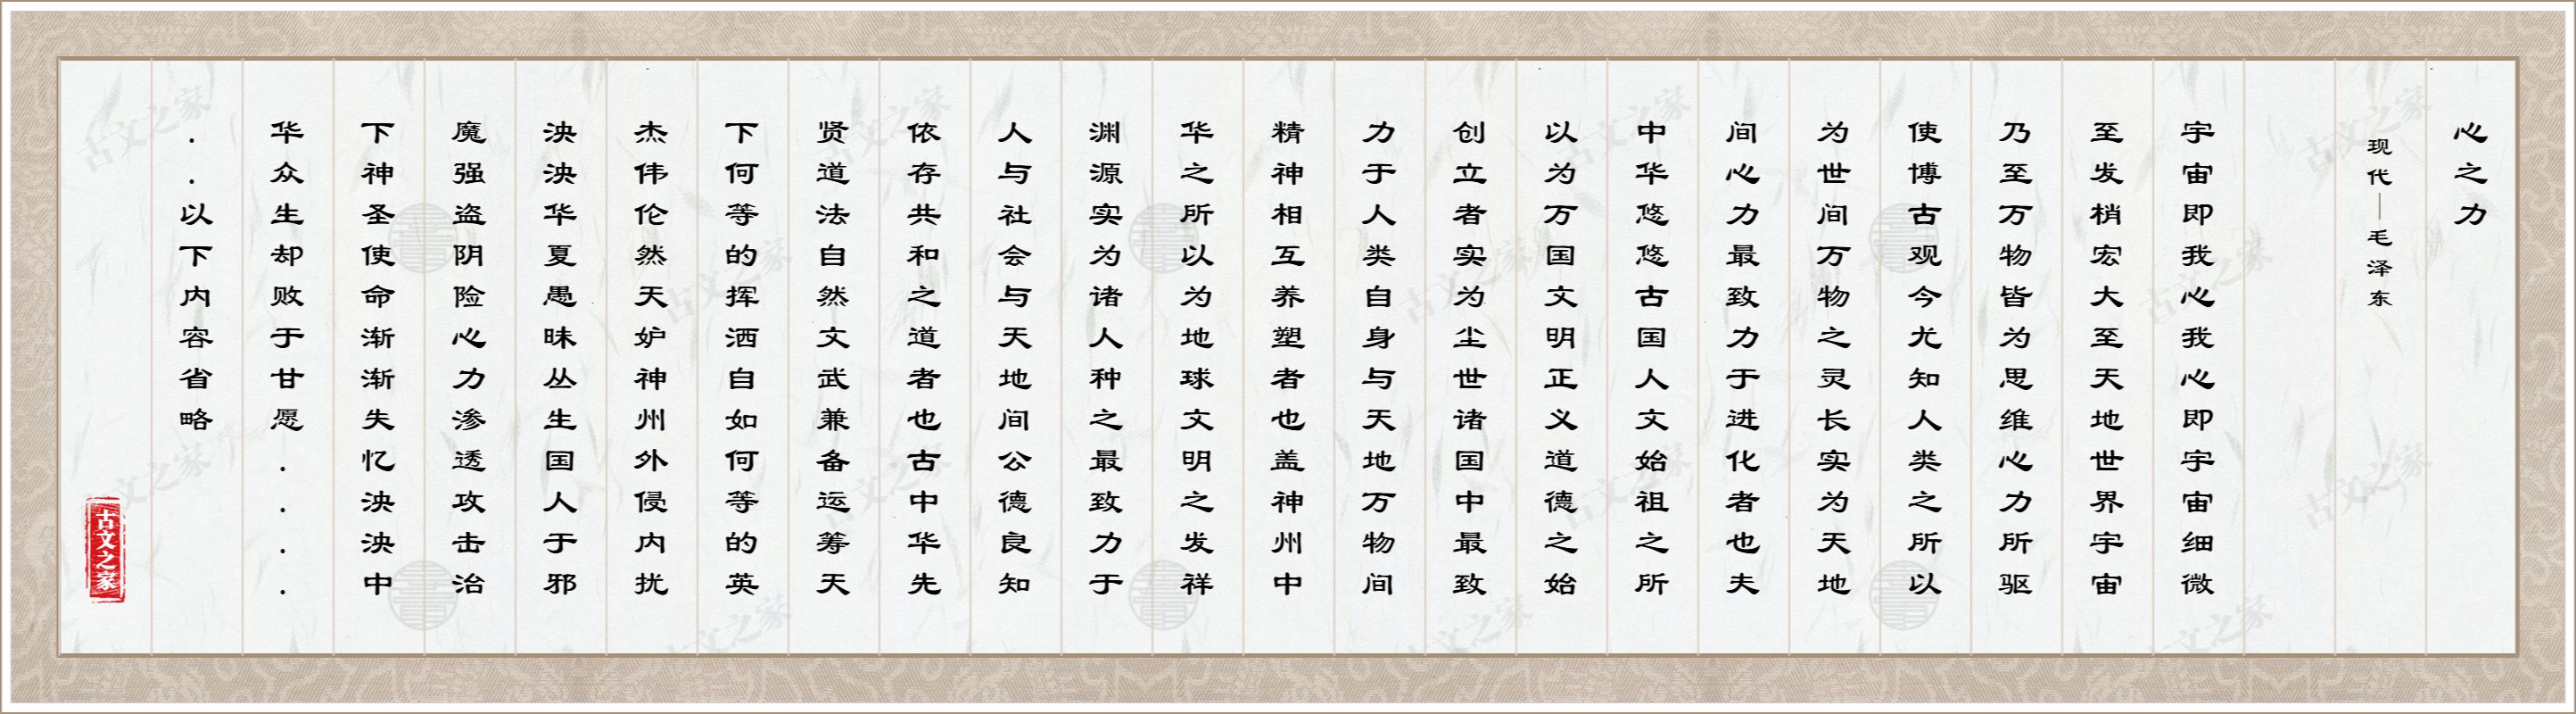 心之力
现代—毛泽东
宇宙即我心我心即宇宙细微
至发梢宏大至天地世界宇宙
乃至万物皆为思维心力所驱
使博古观今尤知人类之所以
为世间万物之灵长实为天地
间心力最致力于进化者也夫
中华悠悠古国人文始祖之所
以为万国文明正义道德之始
创立者实为尘世诸国中最致
力于人类自身与天地万物间
精神相互养塑者也盖神州中
华之所以为地球文明之发祥
渊源实为诸人种之最致力于
人与社会与天地间公德良知
依存共和之道者也古中华先
贤道法自然文武兼备运筹天
下何等的挥洒自如何等的英
杰伟伦然天妒神州外侵内扰
泱泱华夏愚昧丛生国人于邪
魔强盗阴险心力渗透攻击治
下神圣使命渐渐失忆泱泱中
华众生却败于甘愿....
..以下内容省略
古文之家